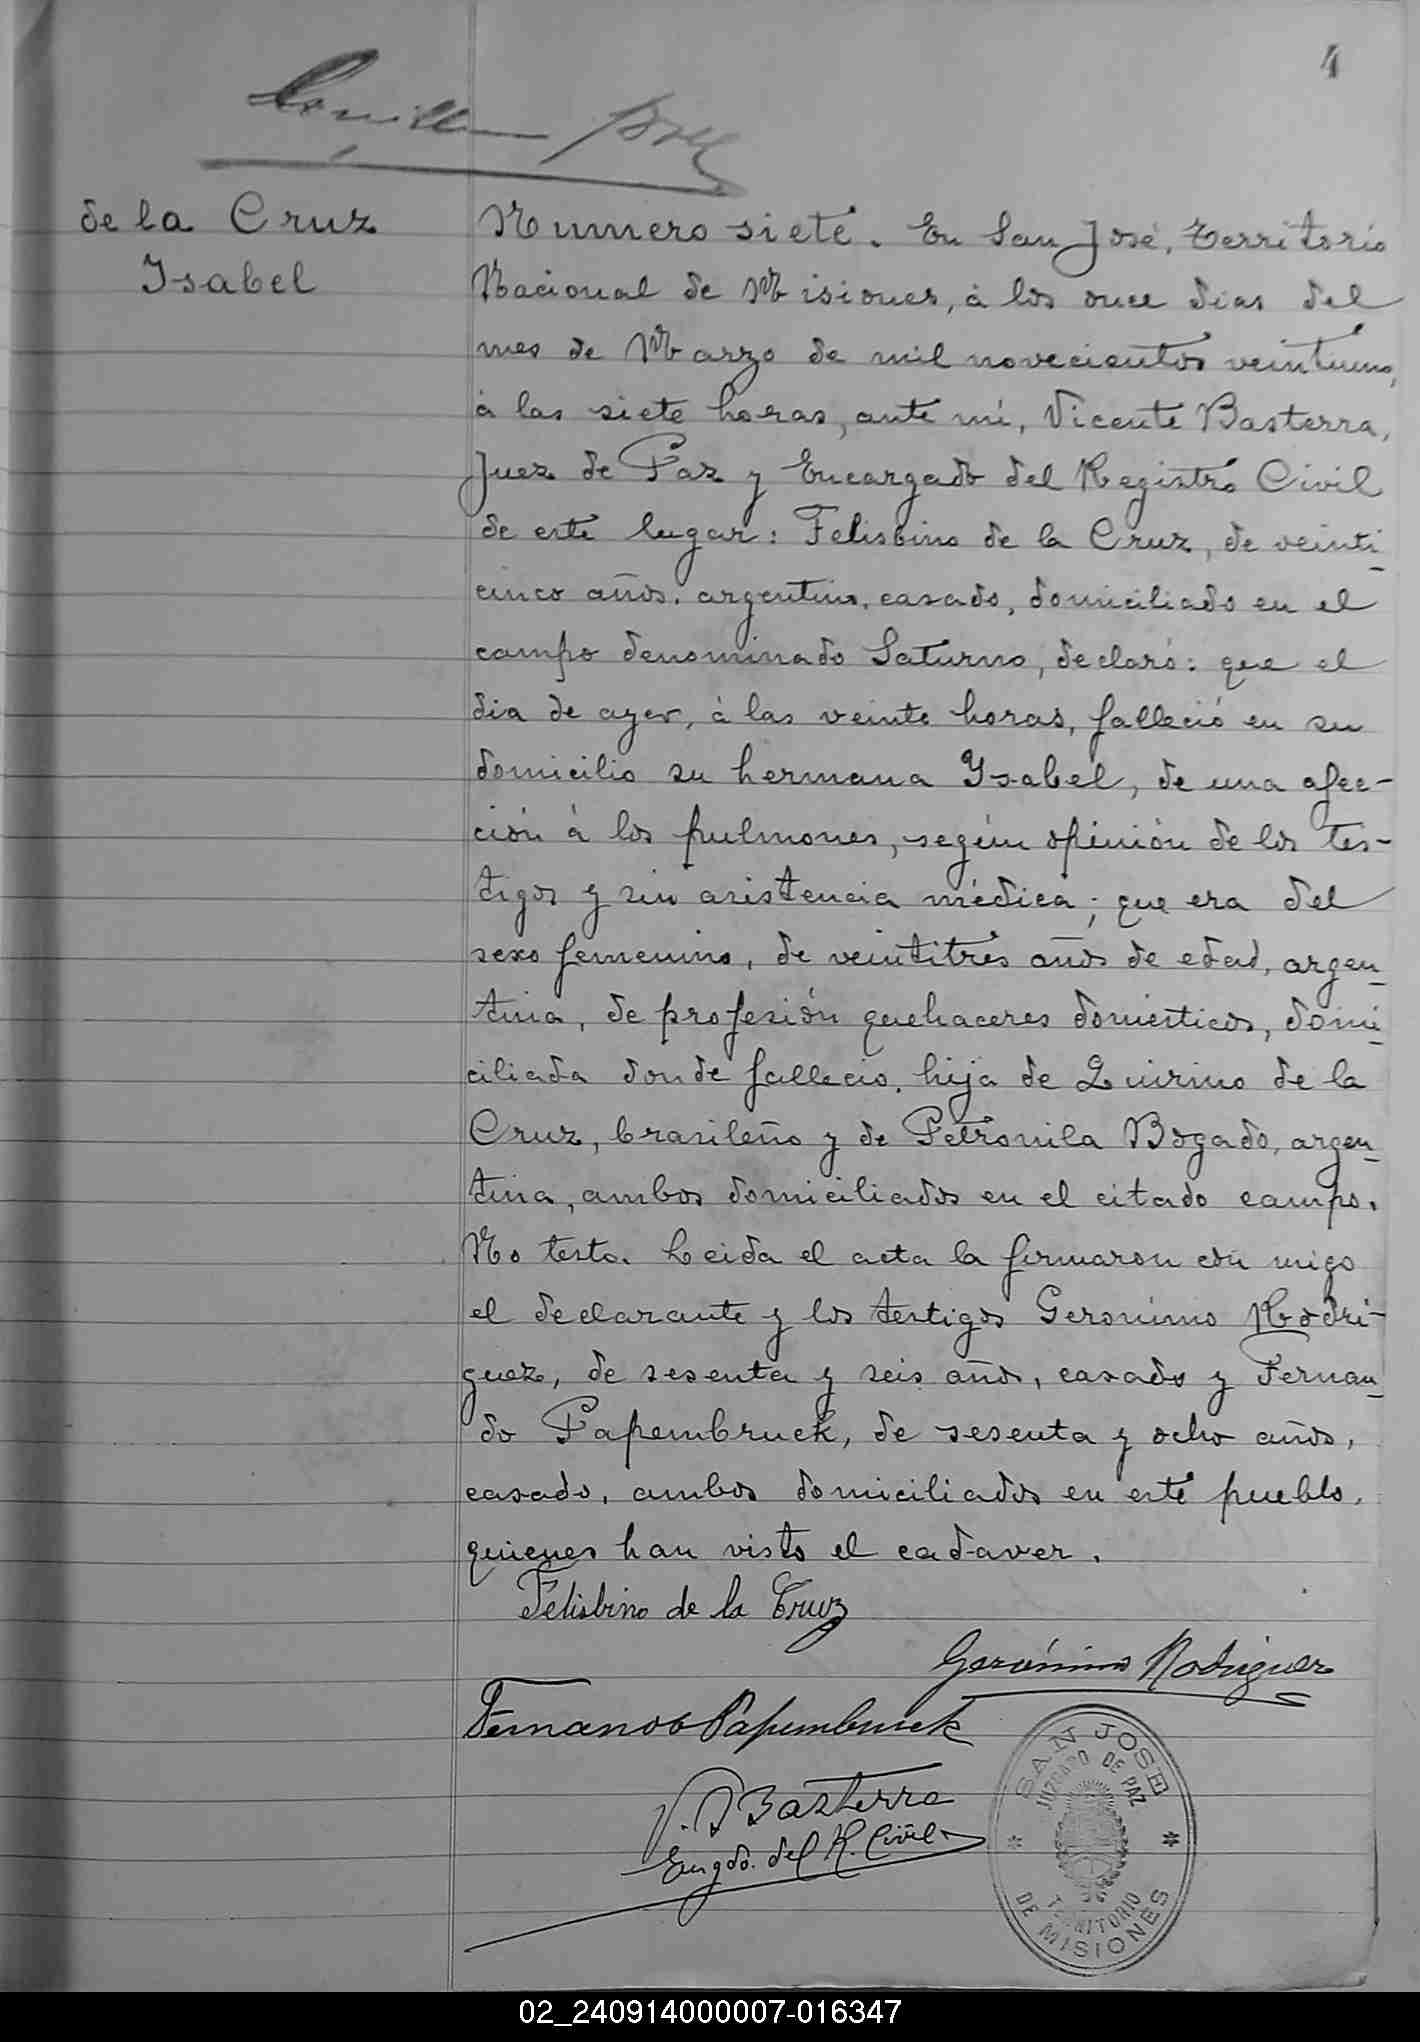 4
de la Cruz
Ysabel
Numero siete. En San José, territorio
Nacional de Misiones, à los once dias del
mes de Marzo de mil novecientos veintiuno,
à las siete horas, ante mi, Vicente Basterra,
Juez de Paz y Encargado del Registro Civil
de este lugar: Felisbino de la Cruz, de veinti
cinco años, argentino, casado, domiciliado en el
campo denominado Saturno, declaró: que el
dia de ayer, à las veinte horas, falleció en su
domicilio su hermana Ysabel, de una afec-
ción à los pulmones, según opinión de los tes-
tigos y sin asistencia médica; que era del
sexo femenino, de veintitrés años de edad, argen
tina, de profesión quehaceres domésticos, domi
ciliada donde falleció, hija de Quirino de la
Cruz, brasileño y de Petronila Bogado, argen
tina, ambos domiciliados en el citado campo.
No testo. Leida el acta la firmaron con migo
el declarante y los testigos Geronimo Rodri-
guez, de sesenta y seis años, casado y Fernan
do Papembruck, de sesenta y ocho años,
casado, ambos domiciliados en este pueblo,
quienes han visto el cadaver.
Felisbino de la Cruz
Gerónimo Rodriguez
Fernando Papembruck
V. D Basterra
Engdo. del R. Civil
SAN JOSE
JUZGADO DE PAZ
TERRITORIO
DE MISIONES
02_240914000007-016347